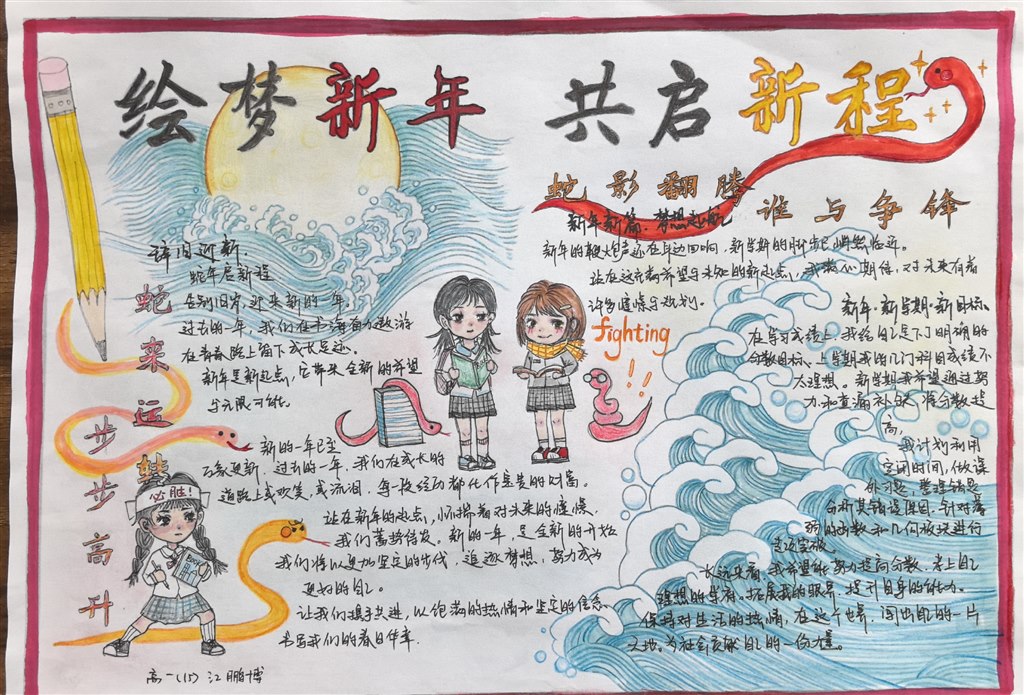 绘梦新年 共启新程
蛇影翻腾 谁与争锋
辞旧迎新
蛇年启新程
告别旧岁，迎来新的一年，
过去的一年，我们在书海奋力遨游
在青春路上留下成长足迹。
新年是新起点，它带来全新的希望
与无限可能。
新的一年已至
万象更新，过去的一年，我们在成长的
道路上或欢笑，或流泪，每段经历都化作宝贵的财富。
让在新年的起点，怀揣着对未来的憧憬，
我们蓄势待发。新的一年，是全新的开始
我们将以更加坚定的步伐，追逐梦想，努力成为
更好的自己。
让我们携手共进，以饱满的热情和坚定的信念，
书写我们的春日华章.
蛇来运
步步高升
必胜!
高一(15) 江鹏博
新年新篇·梦想起航
新年的鞭炮声还在耳边回响，新学期的脚步已悄然临近。
让在这充满希望与未知的新起点，我满心期待，对未来有着
许多憧憬与规划。
fighting
!!
新年·新学期·新目标
在学习成绩上，我给自己定下了明确的
分数目标、上学期我的几门科目成绩不
太理想。新学期我希望通过努
力和查漏补缺，将分数提
高，
我计划利用
空闲时间，做课
外习题，整理错题
分析其错误原因，针对薄
弱的函数和几何板块进行
专项突破。
长远来看，我希望能努力提高分数，考上自己
理想的学府，拓展我的眼界，提升自身的能力。
保持对生活的热情，在这个世界，闯出自己的一片
天地。为社会贡献自己的一份力量。